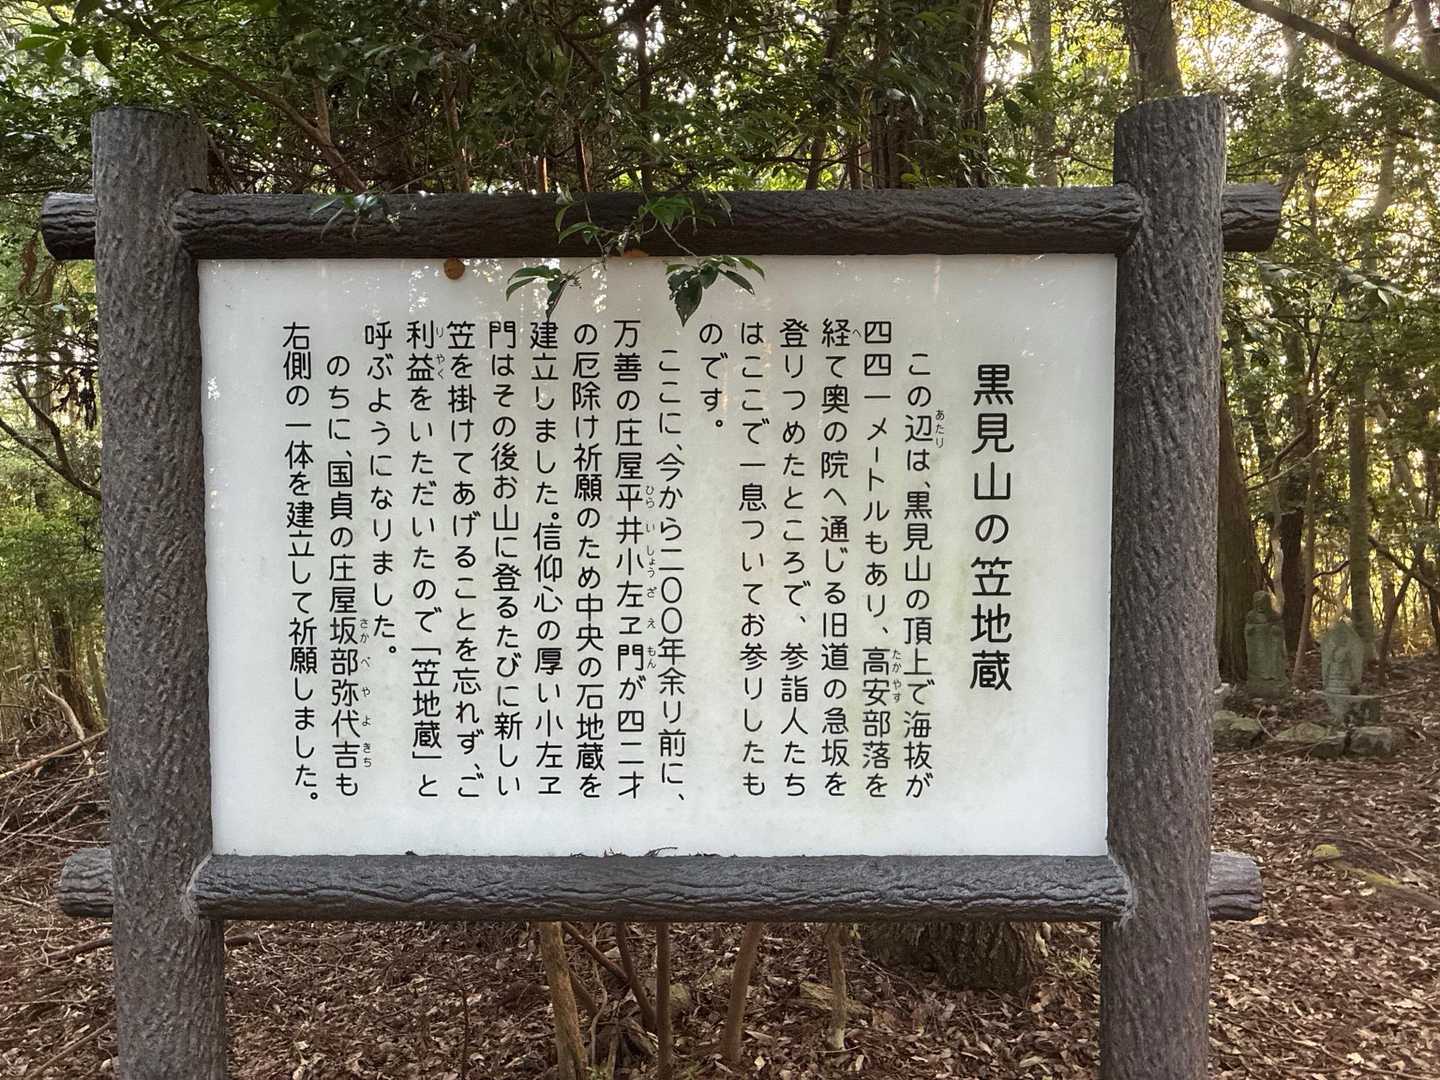 黒見山の笠地蔵
この辺は、黒見山の頂上で海抜が
四四一メートルもあり、高安部落を
経て奥の院へ通じる旧道の急坂を
登りつめたところで、参詣人たち
はここで一息ついてお参りしたも
のです。
ここに、今から二〇〇年余り前に、
万善の庄屋平井小左ヱ門が四二才
の厄除け祈願のため中央の石地蔵を
建立しました。信仰心の厚い小左ヱ
門はその後お山に登るたびに新しい
笠を掛けてあげることを忘れず、ご
利益をいただいたので「笠地蔵」と
呼ぶようになりました。
のちに、国貞の庄屋坂部弥代吉も
右側の一体を建立して祈願しました。